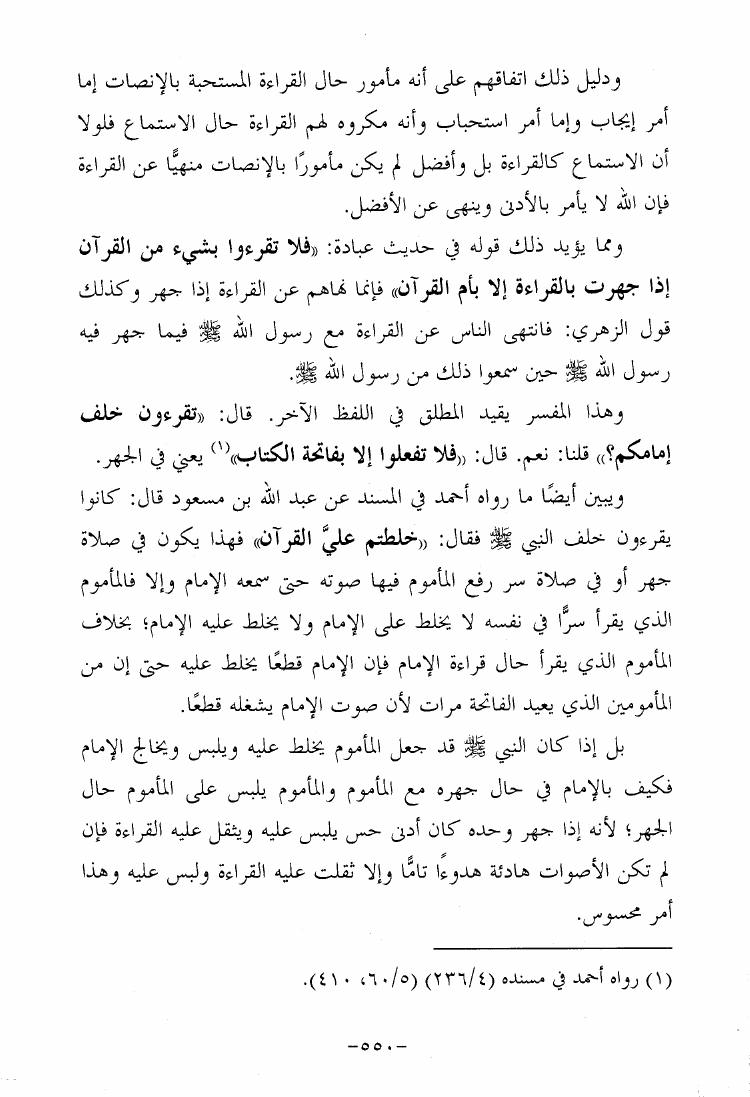 ودليل ذلك اتفاقهم على أنه مأمور حال القراءة المستحبة بالإنصات إما
أمر إيجاب وإما أمر استحباب وأنه مكروه لهم القراءة حال الاستماع فلولا
أن الاستماع كالقراءة بل وأفضل لم يكن مأمورًا بالإنصات منهيًّا عن القراءة
فإن الله لا يأمر بالأدنى وينهى عن الأفضل.
ومما يؤيد ذلك قوله في حديث عبادة: «فلا تقرءوا بشيء من القرآن
إذا جهرت بالقراءة إلا بأم القرآن» فإنما نهاهم عن القراءة إذا جهر وكذلك
قول الزهري: فانتهى الناس عن القراءة مع رسول الله ﷺ فيما جهر فيه
رسول الله ﷺ حين سمعوا ذلك من رسول الله ﷺ.
وهذا المفسر يقيد المطلق في اللفظ الآخر. قال: «تقرءون خلف
إمامكم؟» قلنا: نعم. قال: «فلا تفعلوا إلا بفاتحة الكتاب»(١) يعني في الجهر.
ويبين أيضًا ما رواه أحمد في المسند عن عبد الله بن مسعود قال: كانوا
يقرءون خلف النبي ﷺ فقال: «خلطتم عليَّ القرآن» فهذا يكون في صلاة
جهر أو في صلاة سر رفع المأموم فيها صوته حتى سمعه الإمام وإلا فالمأموم
الذي يقرأ سرًّا في نفسه لا يخلط على الإمام ولا يخلط عليه الإمام؛ بخلاف
المأموم الذي يقرأ حال قراءة الإمام فإن الإمام قطعًا يخلط عليه حتى إن من
المأمومين الذي يعيد الفاتحة مرات لأن صوت الإمام يشغله قطعًا.
بل إذا كان النبي ﷺ قد جعل المأموم يخلط عليه ويلبس ويخالج الإمام
فكيف بالإمام في حال جهره مع المأموم والمأموم يلبس على المأموم حال
الجهر؛ لأنه إذا جهر وحده كان أدنى حس يلبس عليه ويثقل عليه القراءة فإن
لم تكن الأصوات هادئة هدوءًا تامًّا وإلا ثقلت عليه القراءة ولبس عليه وهذا
أمر محسوس.
(١) رواه أحمد في مسنده (٢٣٦/٤) (٦٠/٥، ٤١٠).
-٥٥٠-